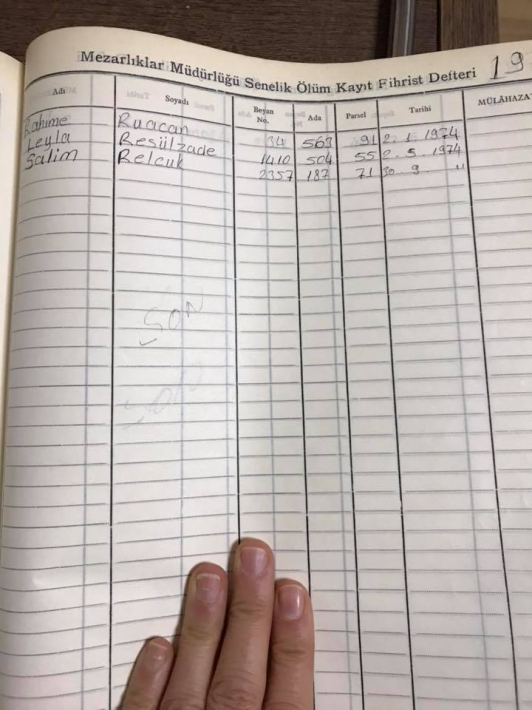 Mezarlıklar Müdürlüğü Senelik Ölüm Kayıt Fihrist Defteri 19
Adı Soyadı Beyan No. Ada Parsel Tarihi MÜLÂHAZA
Rahme Ruacan 34 563 91 2. 1. 1974
Leyla Resülzade 1410 504 55 2. 5. 1974
Salim Relcuk 2357 187 71 30 9. "
SON
SON